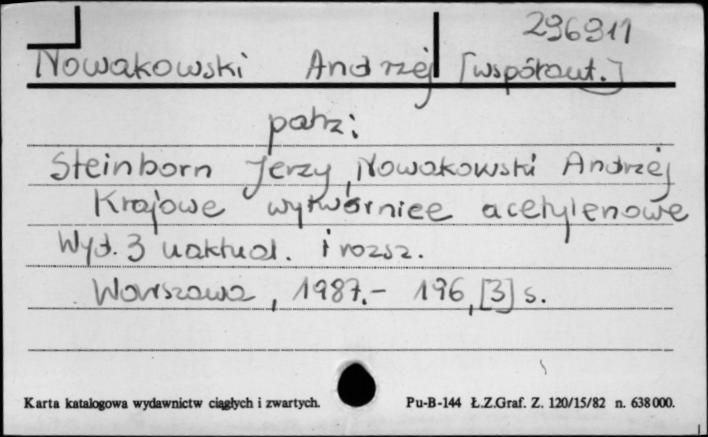 296911
Nowakowski Andrzej [współaut.]
patrz:
Steinborn Jerzy, Nowakowski Andrzej
Krajowe wytwórnice acetylenowe
Wyd. 3 uaktual. i rozsz.
Warszawa, 1987.- 196,[3] s.
Karta katalogowa wydawnictw ciągłych i zwartych.
Pu-B-144 Ł.Z.Graf. Z. 120/15/82 n. 638000.